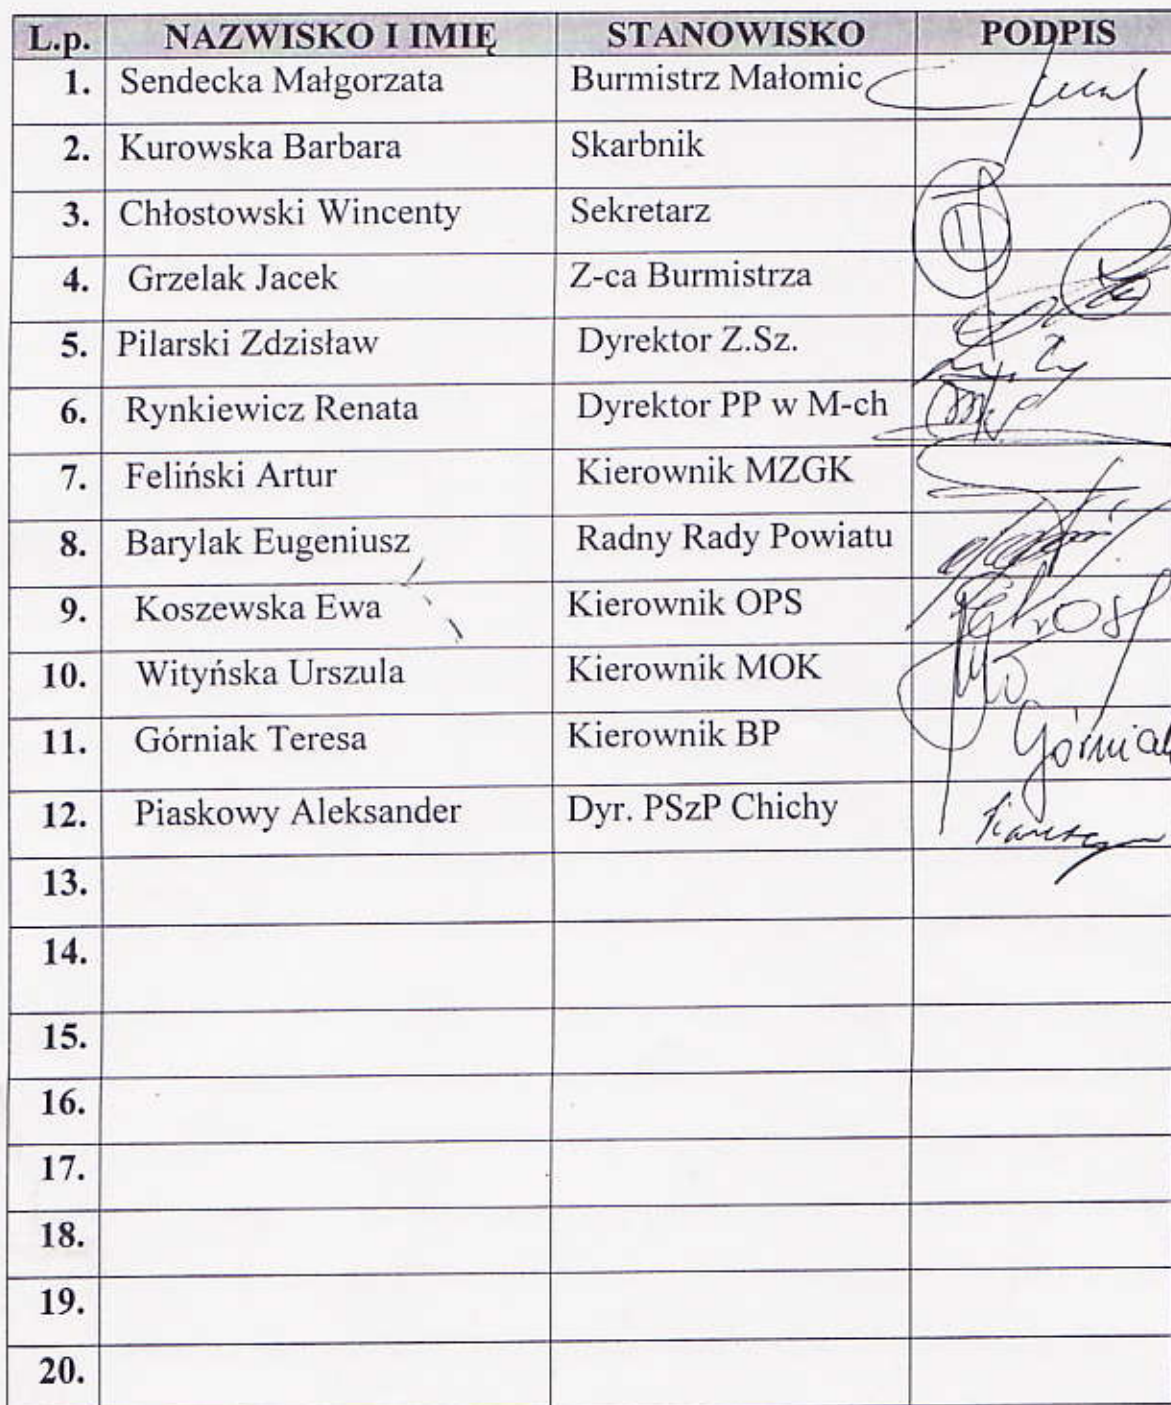 L.p. NAZWISKO I IMIĘ STANOWISKO PODPIS
1. Sendecka Małgorzata Burmistrz Małomic
2. Kurowska Barbara Skarbnik
3. Chłostowski Wincenty Sekretarz
4. Grzelak Jacek Z-ca Burmistrza
5. Pilarski Zdzisław Dyrektor Z.Sz.
6. Rynkiewicz Renata Dyrektor PP w M-ch
7. Feliński Artur Kierownik MZGK
8. Barylak Eugeniusz Radny Rady Powiatu
9. Koszewska Ewa Kierownik OPS
10. Wityńska Urszula Kierownik MOK
11. Górniak Teresa Kierownik BP Górniak
12. Piaskowy Aleksander Dyr. PSzP Chichy
13.
14.
15.
16.
17.
18.
19.
20.